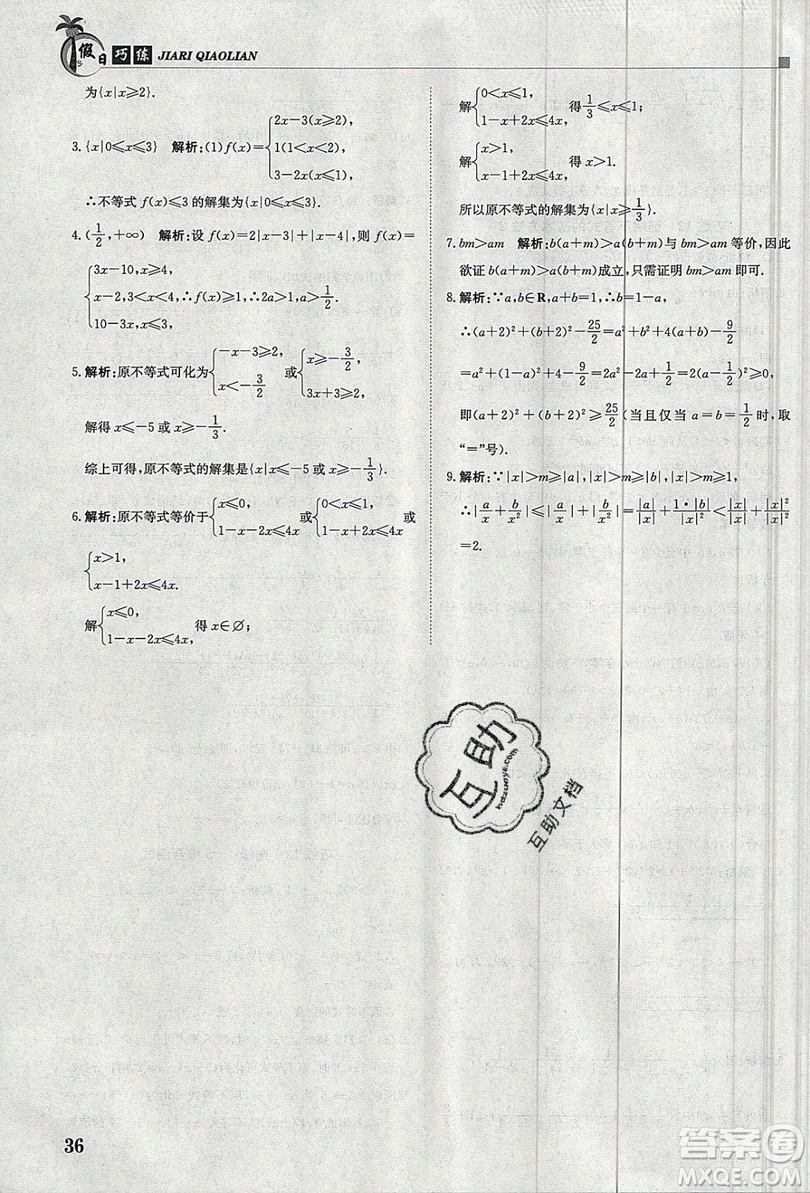 假日巧练 JIARI QIAOLIAN
为{x|x≥2}.
3. {x|0≤x≤3} 解析:(1)f(x)={2x-3(x≥2), 1(1<x<2), 3-2x(x≤1),
∴不等式 f(x)≤3 的解集为{x|0≤x≤3}.
4. (1/2,+∞) 解析:设 f(x)=2|x-3|+|x-4|,则 f(x)=
{3x-10,x≥4, x-2,3<x<4, 10-3x,x≤3, ∴f(x)≥1,∴2a>1,a>1/2.
5. 解析:原不等式可化为{-x-3≥2, x<-3/2 或{x≥-3/2, 3x+3≥2,
解得 x≤-5 或 x≥-1/3.
综上可得,原不等式的解集是{x|x≤-5 或 x≥-1/3}.
6. 解析:原不等式等价于{x≤0, 1-x-2x≤4x 或{0<x≤1, 1-x+2x≤4x 或
{x>1, x-1+2x≤4x.
解{x≤0, 1-x-2x≤4x, 得 x∈∅;
解{0<x≤1, 1-x+2x≤4x, 得1/3≤x≤1;
解{x>1, x-1+2x≤4x, 得 x>1.
所以原不等式的解集为{x|x≥1/3}.
7. bm>am 解析:b(a+m)>a(b+m)与 bm>am 等价,因此
欲证 b(a+m)>a(b+m)成立,只需证明 bm>am 即可.
8. 解析:∵a,b∈R,a+b=1,∴b=1-a,
∴(a+2)²+(b+2)²-25/2=a²+b²+4(a+b)-9/2
=a²+(1-a)²+4-9/2=2a²-2a+1/2=2(a-1/2)²≥0,
即(a+2)²+(b+2)²≥25/2(当且仅当 a=b=1/2时,取
“=”号).
9. 解析:∵|x|>m≥|a|,|x|>m≥|b|,|x|>m≥1,
∴|a/x+b/x²|≤|a/x|+|b/x²|=|a|/|x|+1·|b|/|x|²<|x|/|x|+|x|²/|x|²
=2.
互助
hdzuoye.com
互助文档
36
答案圈
MXQE.COM